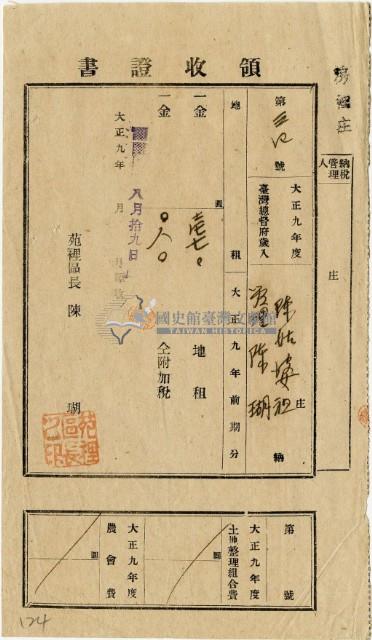 領收證書
房裡庄
納稅管理人
庄
第 號
大正九年度
臺灣總督府歲入
陳姑婆祖
管理 陳瑚
庄
納
地租
大正九年前期分
一金
圓
地租
一金
仝附加稅
大正九年 月
八月拾九日
苑裡區長 陳 瑚
苑裡區長之印
國史館臺灣文獻館
TAIWAN HISTORICA
第 號
大正九年度
土地整理組合費
圓
大正九年度
農會費
圓
124